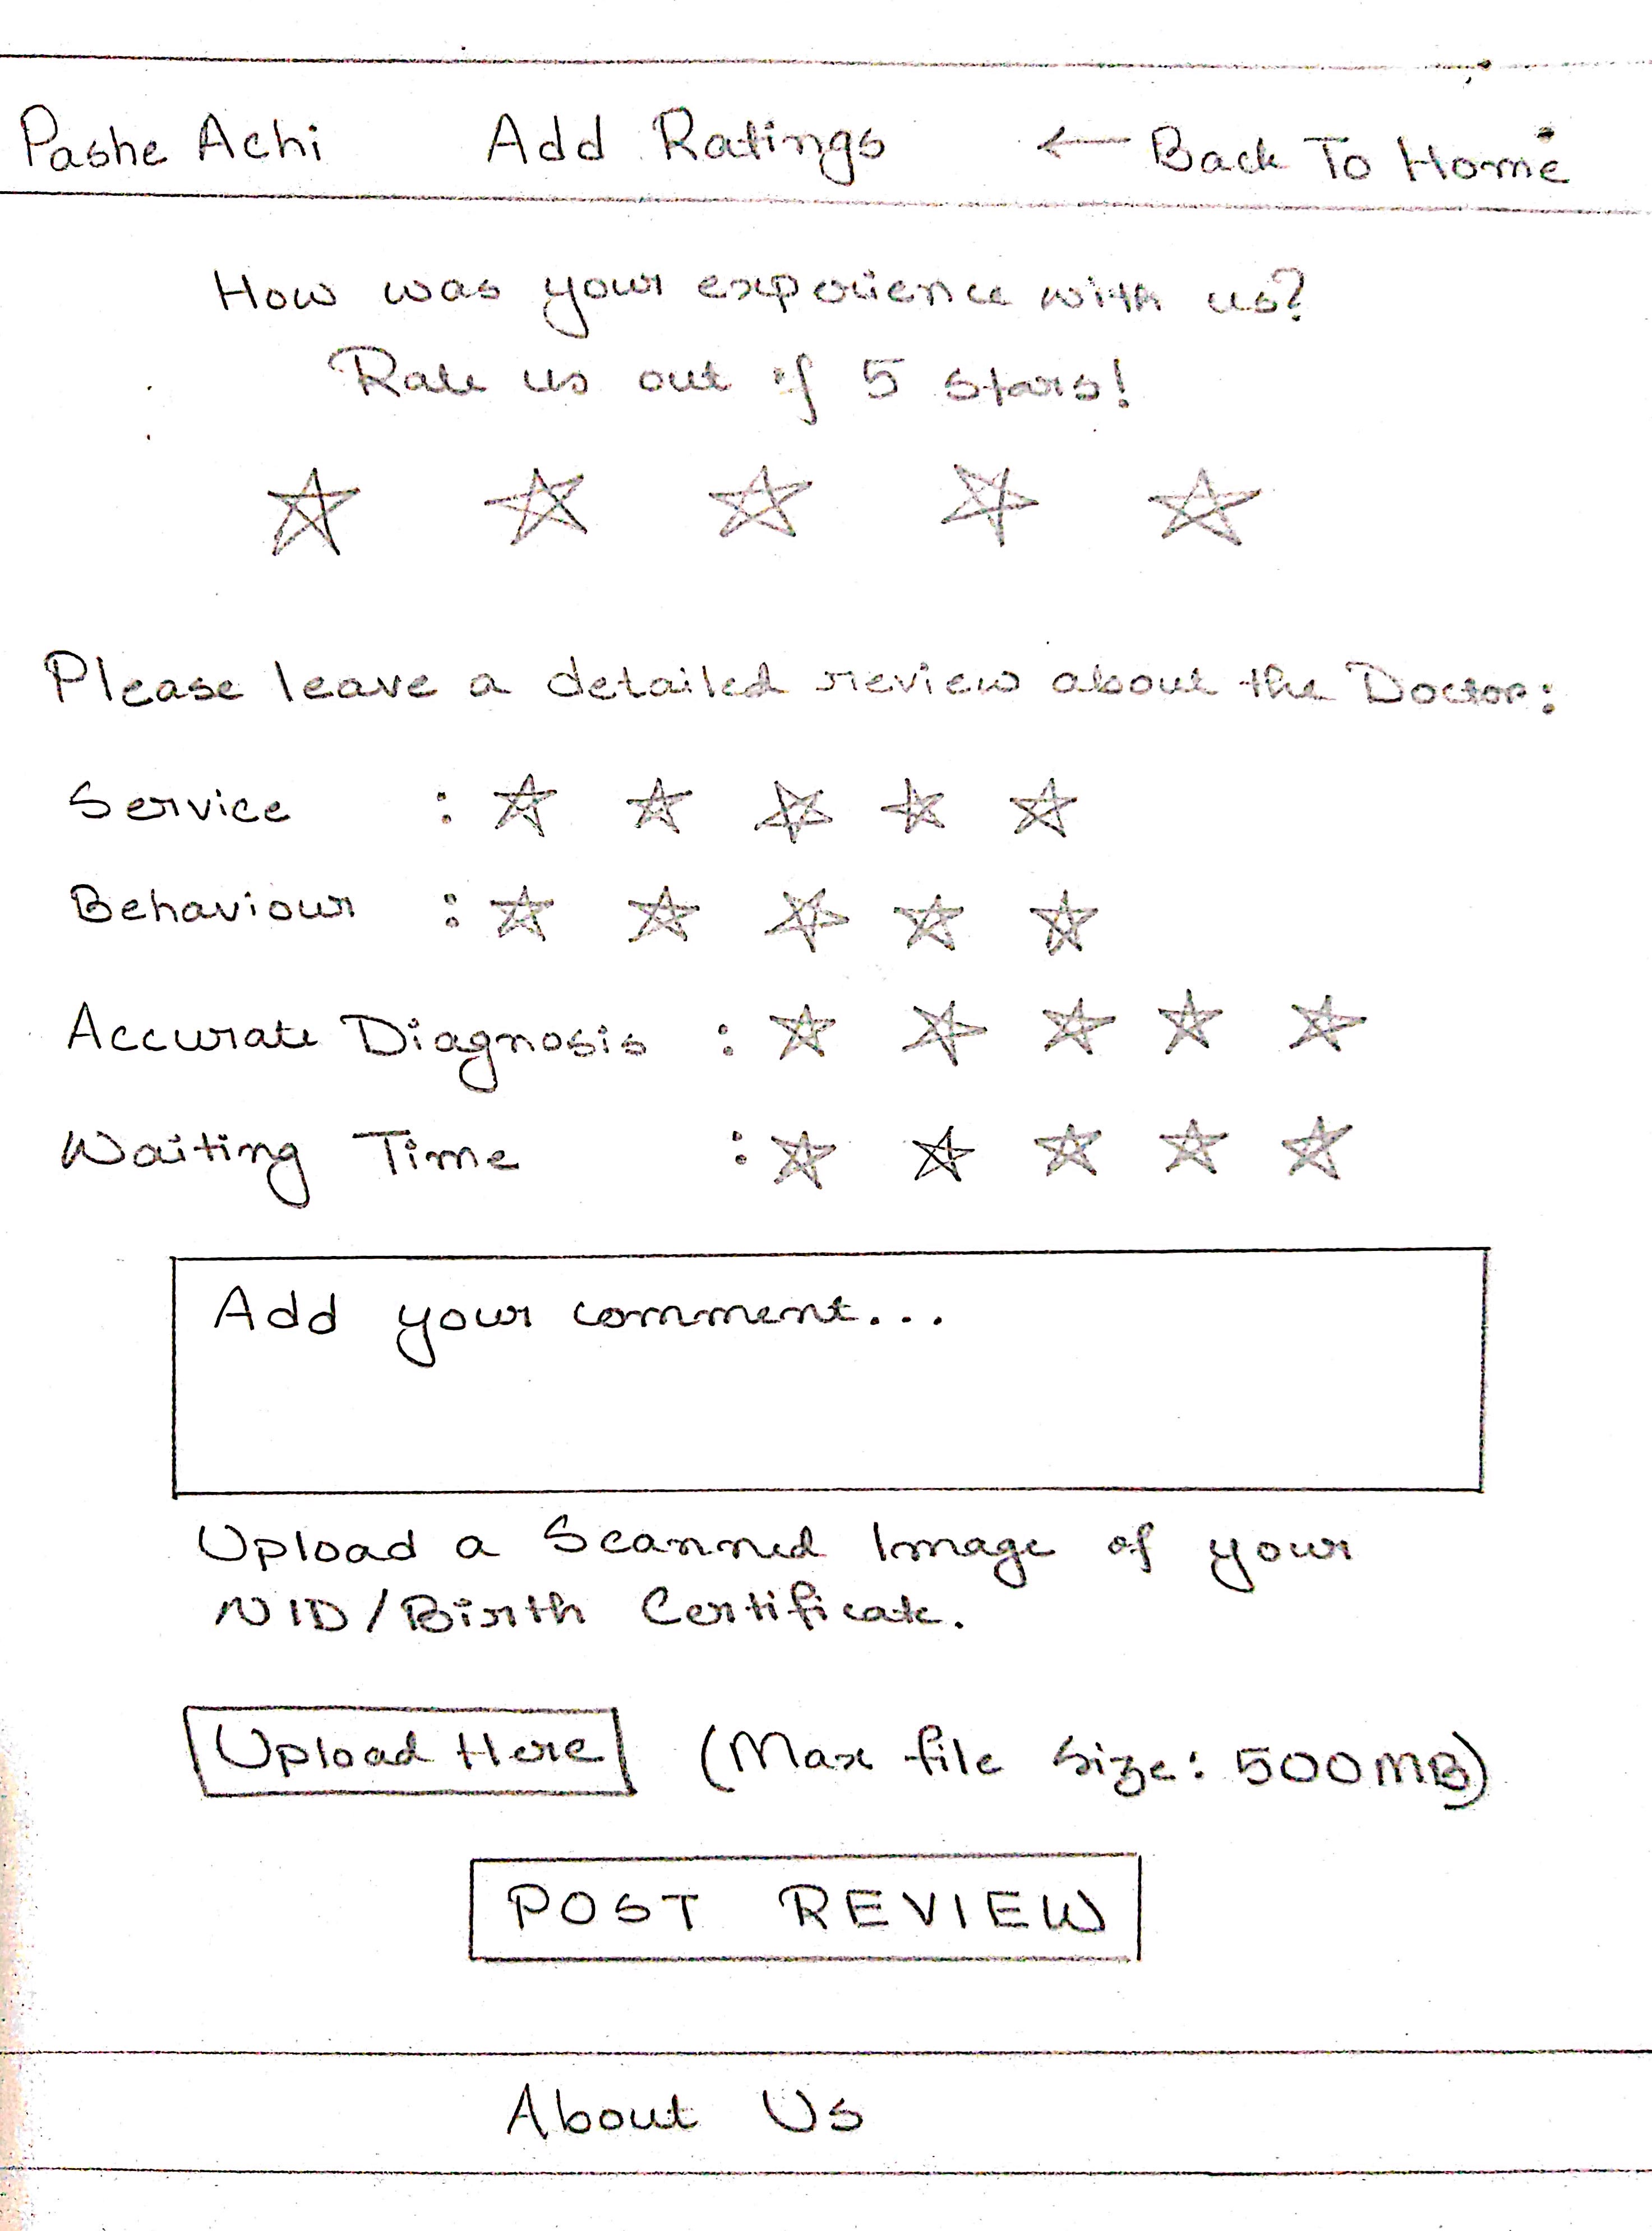 Pashe Achi Add Ratings ← Back To Home
How was your experience with us?
Rate us out of 5 stars!
Please leave a detailed review about the Doctor:
Service :
Behaviour :
Accurate Diagnosis :
Waiting Time :
Add your comment...
Upload a Scanned Image of your
NID/Birth Certificate.
Upload Here (Max file size: 500MB)
POST REVIEW
About Us